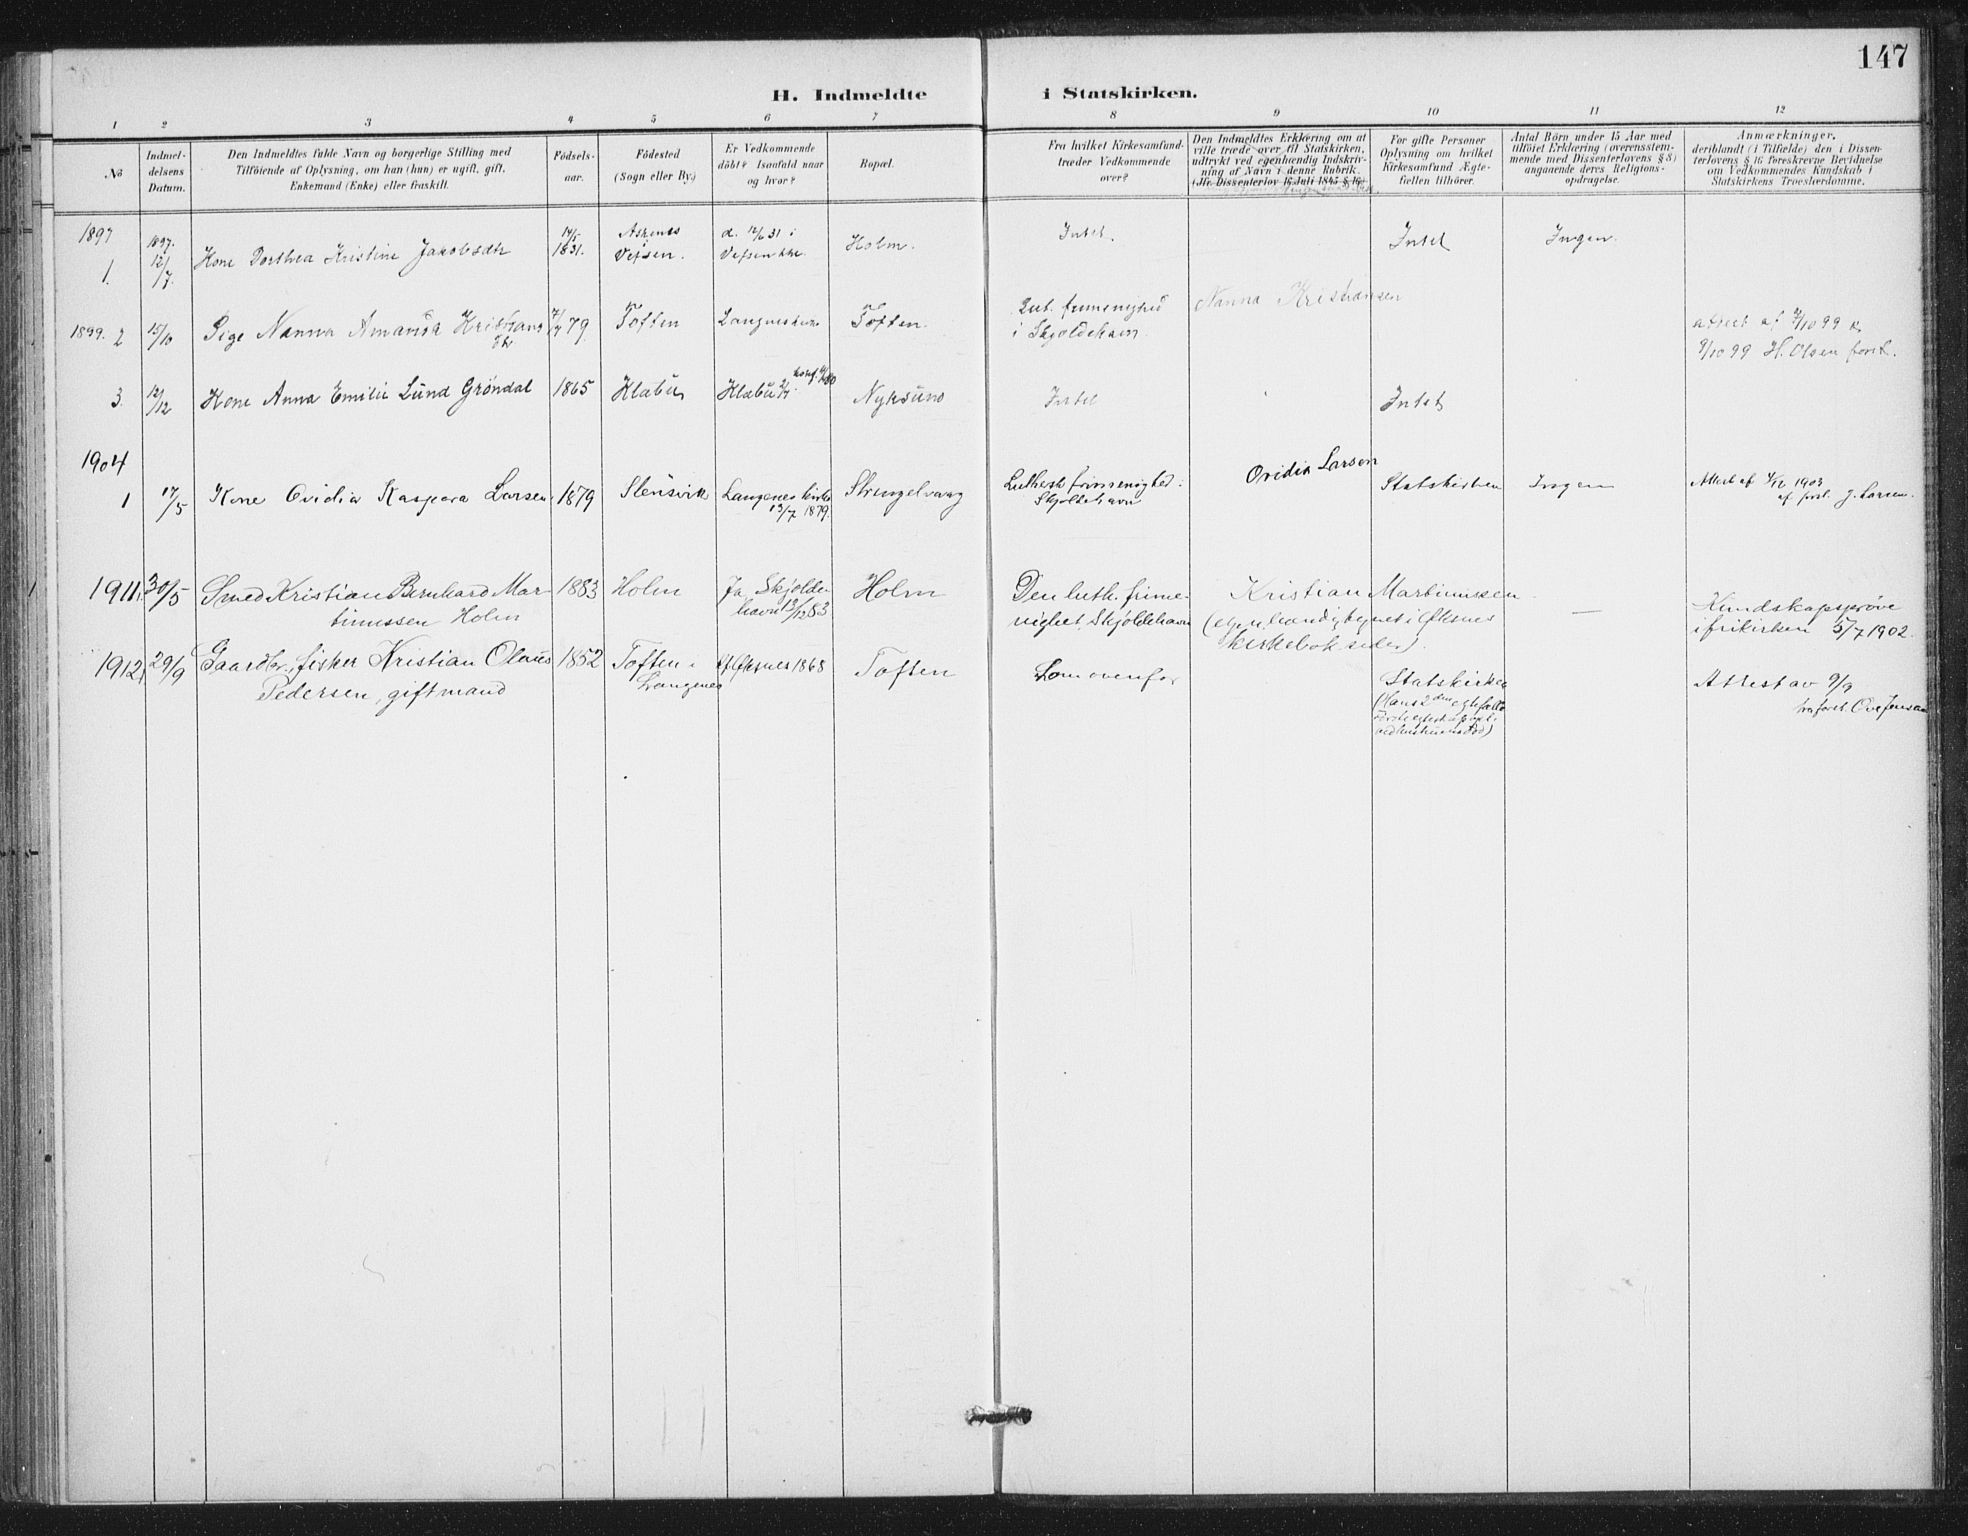 147
H. Indmeldte i Statskirken.
1 2 3 4 5 6 7 8 9 10 11 12
No
Indmeldelsens Datum.
Den Indmeldtes fulde Navn og borgerlige Stilling med
Tilföiende af Oplysning, om han (hun) er ugift, gift,
Enkemand (Enke) eller fraskilt.
Födsels-
aar.
Födested
(Sogn eller By.)
Er Vedkommende
döbt? Isaafald naar
og hvor?
Bopæl.
Fra hvilket Kirkesamfund
træder Vedkommende
over?
Den Indmeldtes Erklæring om at
ville træde over til Statskirken,
udtrykt ved egenhændig Indskriv-
ning af Navn i denne Rubrik.
(Jfr. Dissenterlov 16 Juli 1845 § 16)
For gifte Personer
Oplysning om hvilket
Kirkesamfund Ægte-
fællen tilhörer.
Antal Börn under 15 Aar med
tilföiet Erklæring (overensstem-
mende med Dissenterlovens § 8)
angaaende deres Religions-
opdragelse.
Anmærkninger,
deriblandt (i Tilfælde) den i Dissen-
terlovens § 16 foreskrevne Bevidnelse
om Vedkommendes Kundskab i
Statskirkens Troeslærdomme.
1897
1. 1897. 12/7 Kone Dorthea Kristine Jakobsdtr 1831. Vefsen. d. 12/6 31 i Vefsen Holm. Intet. Intet Ingen.
1899. 2 15/10 Pige Nanna Amanda Kristians dtr 79 Toften Toften. Lut. frimenighed
i Skjoldehavn. Nanna Kristiansen attest af 99
99 H. Olsen forst.
3. 12/12 Kone Anna Emilie Lund Gröndal 1865 Klæbu Klæbu Nyksund Intet Intet
1904
1 17/5 Kone Ovidia Kaspara Larsen 1879 Stensvik Langenes kirke
13/7 1879. Strengelvaag Luthersk frimenighed.
Skjoldehavn Ovidia Larsen Statskirken Ingen Attest af 1903
af forst. J. Larsen.
1911. 30/5 Smed Kristian Bernhard Mar-
tinussen Holm 1883 Holm Ja, Skjolde-
havn 13/12 83 Holm Den luth. frime-
nighet, Skjoldehavn Kristian Martinussen
(egenhændig tegnet i Øksnes
kirkebok seder). — Kundskapsprøve
i frikirken 5/7 1902.
1912. 29/9 Gaardbr., fisker Kristian Olaus
Pedersen, gift mand 1852 Toften,
Langenes Øksnes 1868 Toften Som ovenfor Statskirken
(Hans 2den egtefælle Attest av 9/9
fra forst. Ove Jensen